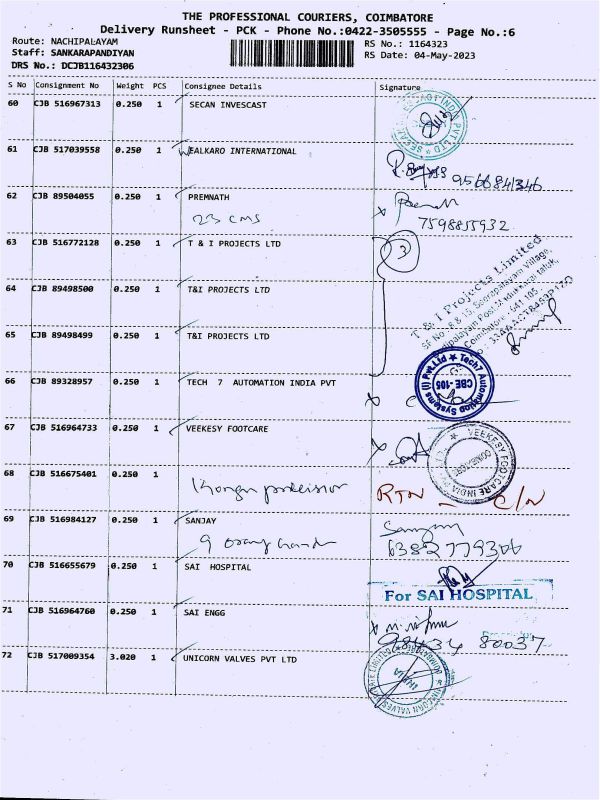 THE PROFESSIONAL COURIERS, COIMBATORE
Delivery Runsheet - PCK - Phone No.:0422-3505555 - Page No.:6
Route: NACHIPALAYAM RS No.: 1164323
Staff: SANKARAPANDIYAN RS Date: 04-May-2023
DRS No.: DCJB116432306
S No Consignment No Weight PCS Consignee Details Signature
60 CJB 516967313 0.250 1 SECAN INVESCAST
61 CJB 517039558 0.250 1 WEALKARO INTERNATIONAL
9566841346
62 CJB 89504055 0.250 1 PREMNATH
23 cms
7598855932
63 CJB 516772128 0.250 1 T & I PROJECTS LTD 3
64 CJB 89498500 0.250 1 T&I PROJECTS LTD
T & I Projects Limited
65 CJB 89498499 0.250 1 T&I PROJECTS LTD
66 CJB 89328957 0.250 1 TECH 7 AUTOMATION INDIA PVT
Tech7 Automation Systems (I) Pvt.Ltd
CBE -105
67 CJB 516964733 0.250 1 VEEKESY FOOTCARE
VEEKESY FOOTCARE INDIA PVT
68 CJB 516675401 0.250 1
RTN - C/N
69 CJB 516984127 0.250 1 SANJAY
6382779306
70 CJB 516655679 0.250 1 SAI HOSPITAL
For SAI HOSPITAL
71 CJB 516964760 0.250 1 SAI ENGG
98434 80037
72 CJB 517009354 3.020 1 UNICORN VALVES PVT LTD